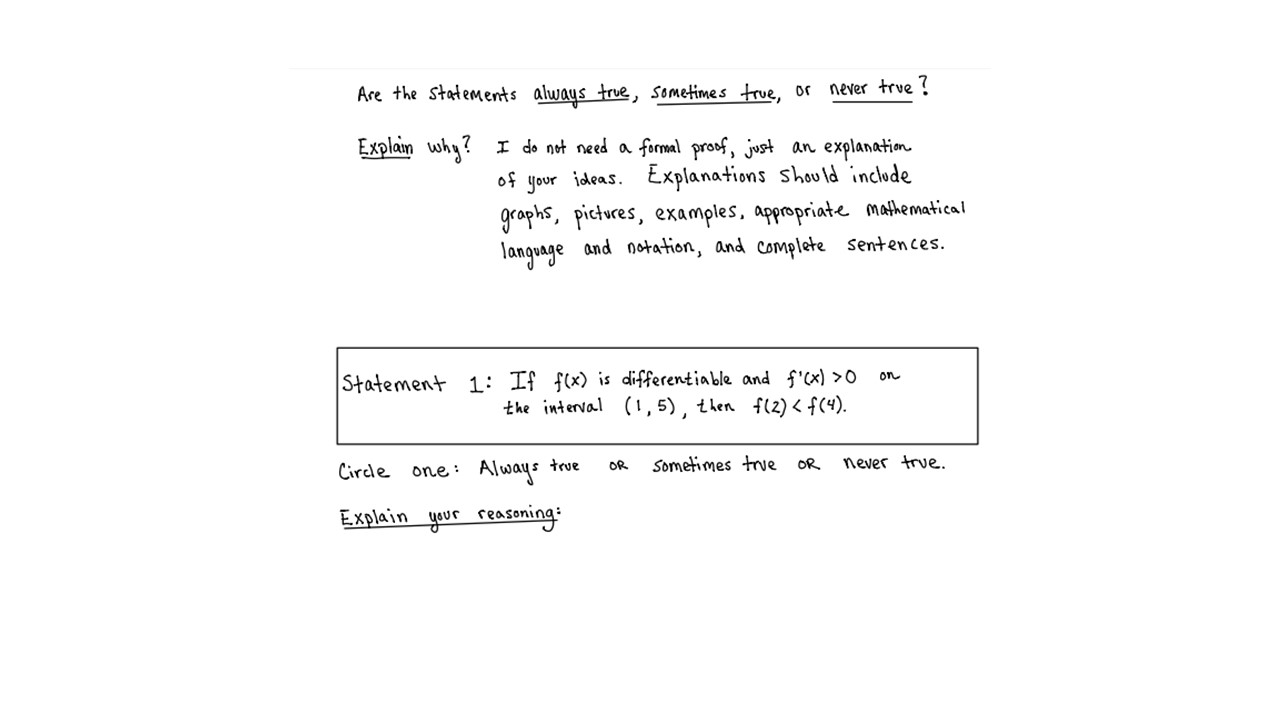 Are the statements always true, sometimes true, or never true?
Explain why? I do not need a formal proof, just an explanation
of your ideas. Explanations should include
graphs, pictures, examples, appropriate mathematical
language and notation, and complete sentences.
Statement 1: If f(x) is differentiable and f'(x) >0 on
the interval (1,5), then f(2) < f(4).
Circle one: Always true OR sometimes true OR never true.
Explain your reasoning: